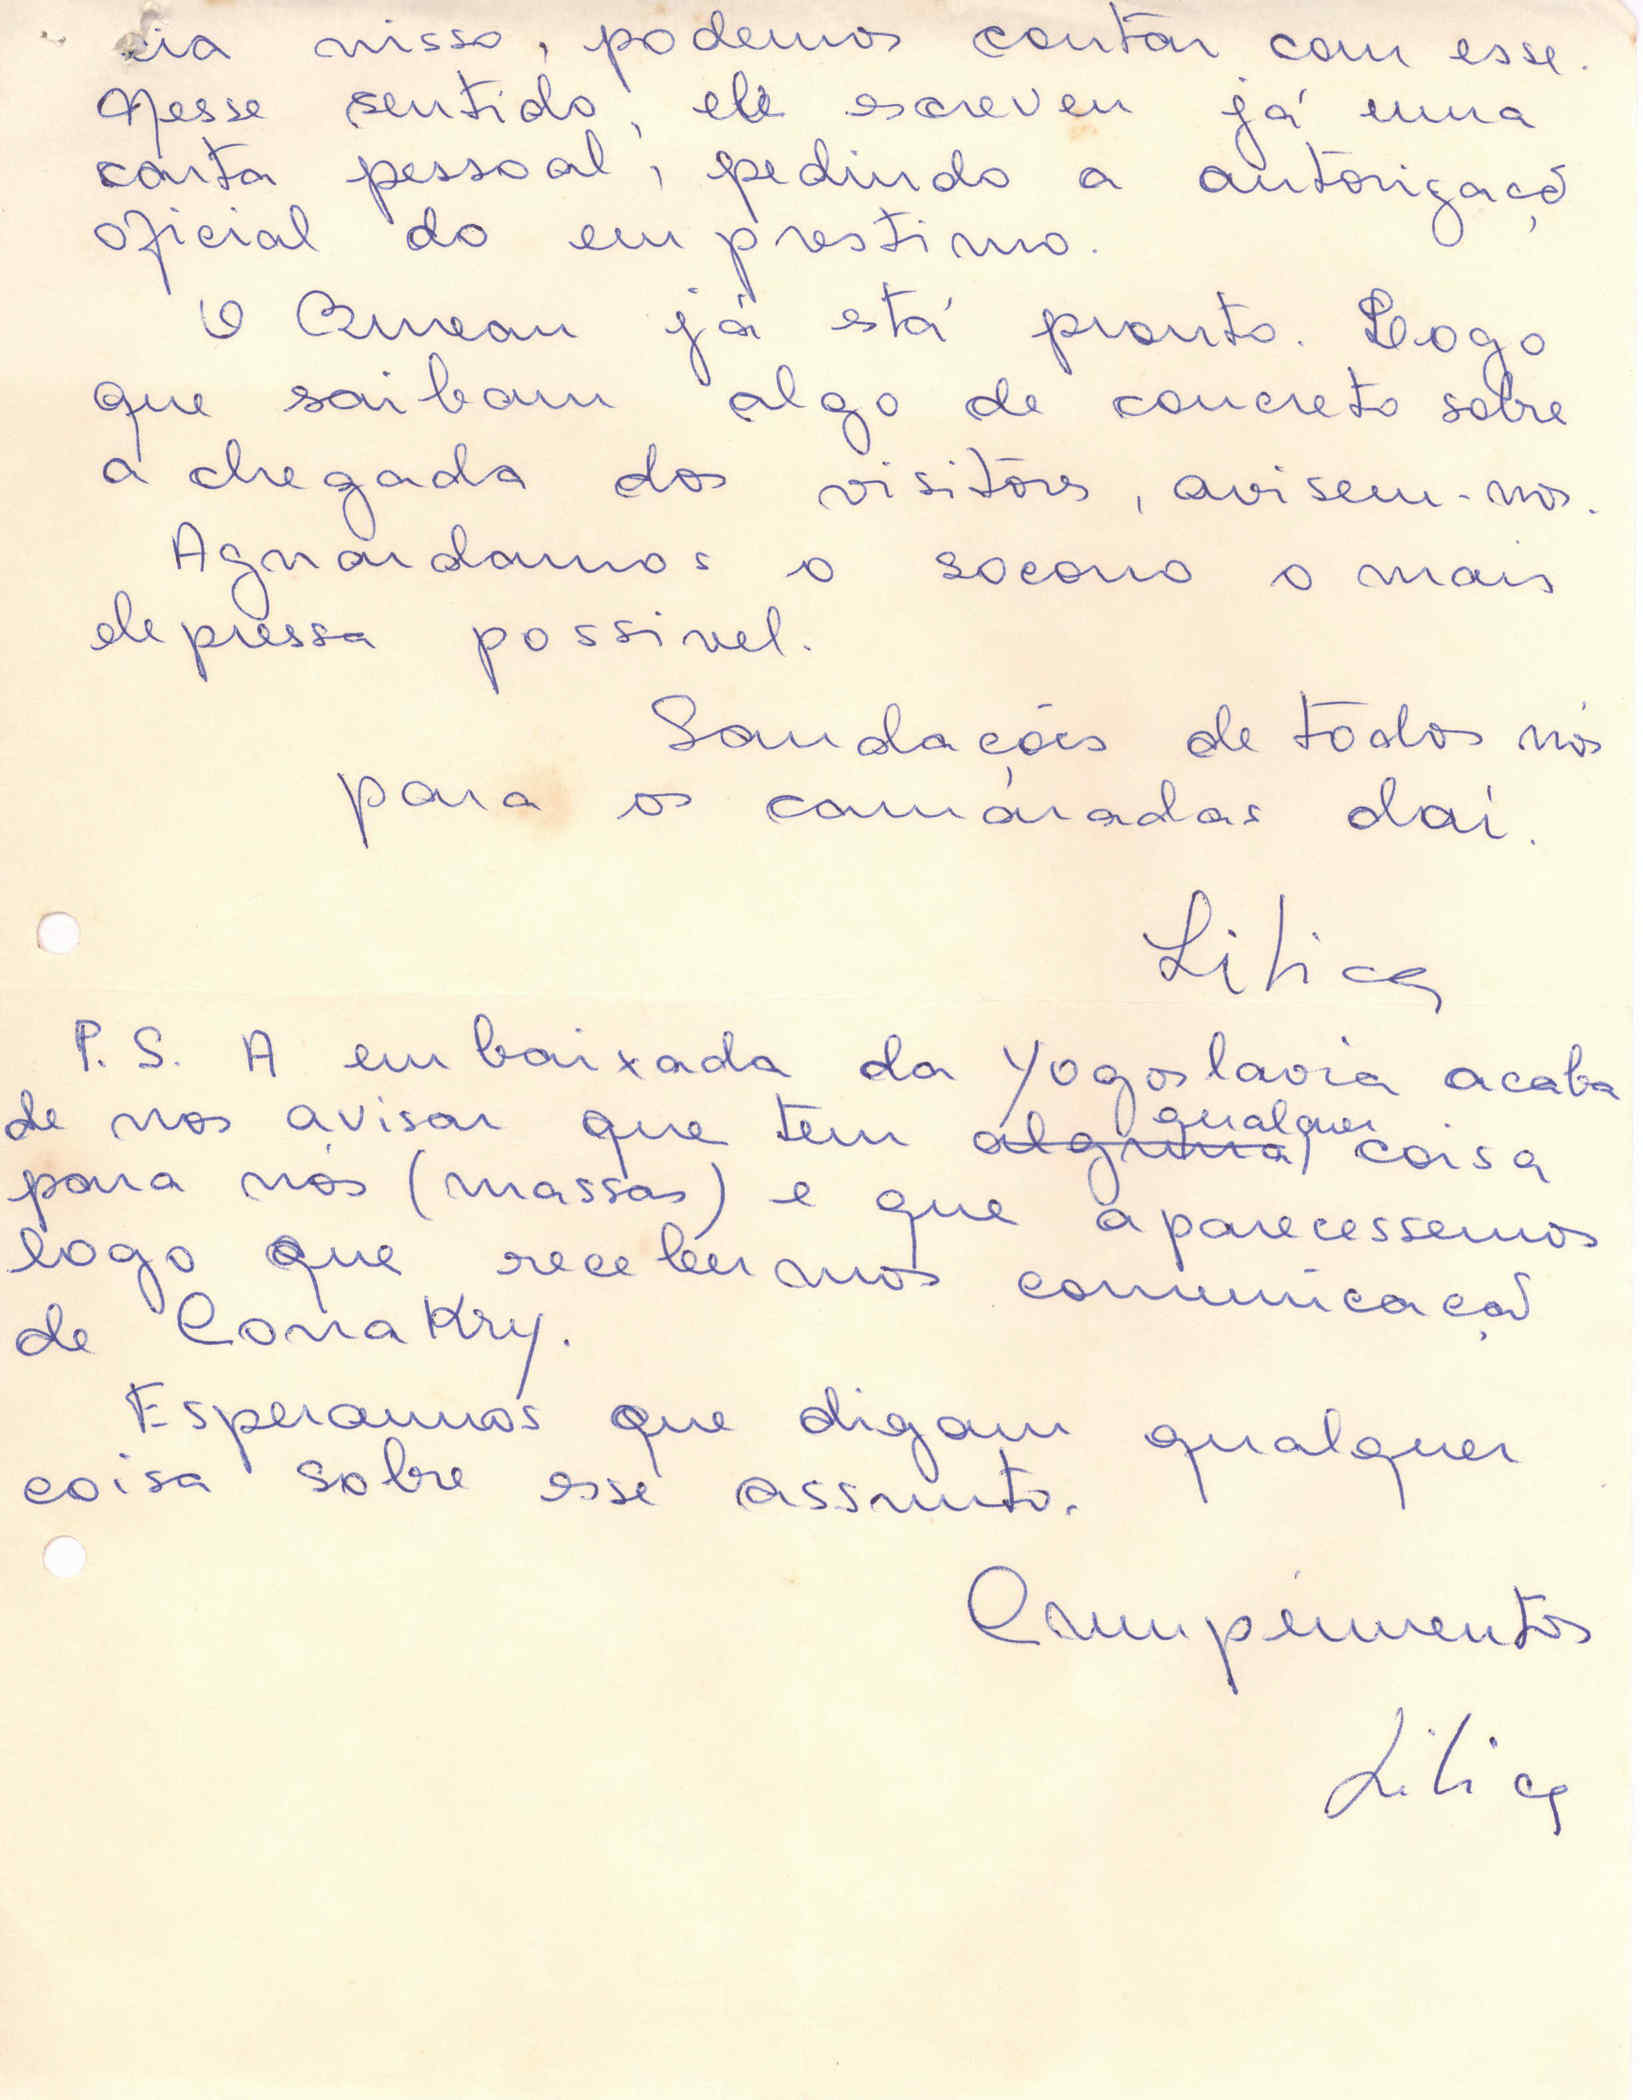 cia nisso, podemos contar com esse.
Nesse sentido, ele escreveu já uma
carta pessoal, pedindo a autorizaçõ
oficial do emprestimo.
O já está pronto. Logo
que saibam algo de concreto sobre
a chegada dos visitôres, avisem-nos.
Aguardamos o socorro o mais
depressa possivel.
Saudações de todos nós
para os camáradas daí.
Lilica
P. S. A embaixada da Yogoslavia acaba
de nos avisar que tem alguma qualquer coisa
para nós (massas) e que aparecessemos
logo que recebermos comunicaçaõ
de Conakry.
Esperamos que digam qualquer
coisa sobre esse assunto.
Cumpérimentos
Lilica